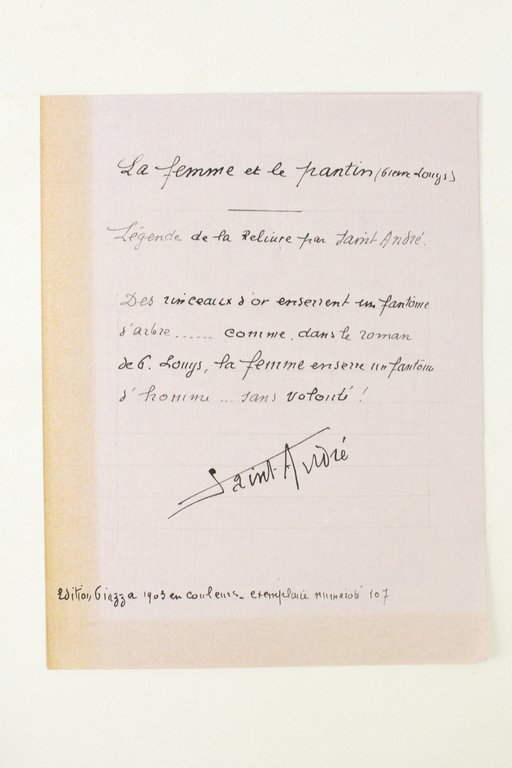 La femme et le pantin (Pierre Louys)
Légende de la Reliure par Saint André.
Des rinceaux d'or enserrent un fantôme
d'arbre ...... comme, dans le roman
de P. Louys, la femme enserre un fantôme
d'homme ... sans volonté !
Saint-André
Edition Piazza 1903 en couleurs - exemplaire numéroté 107